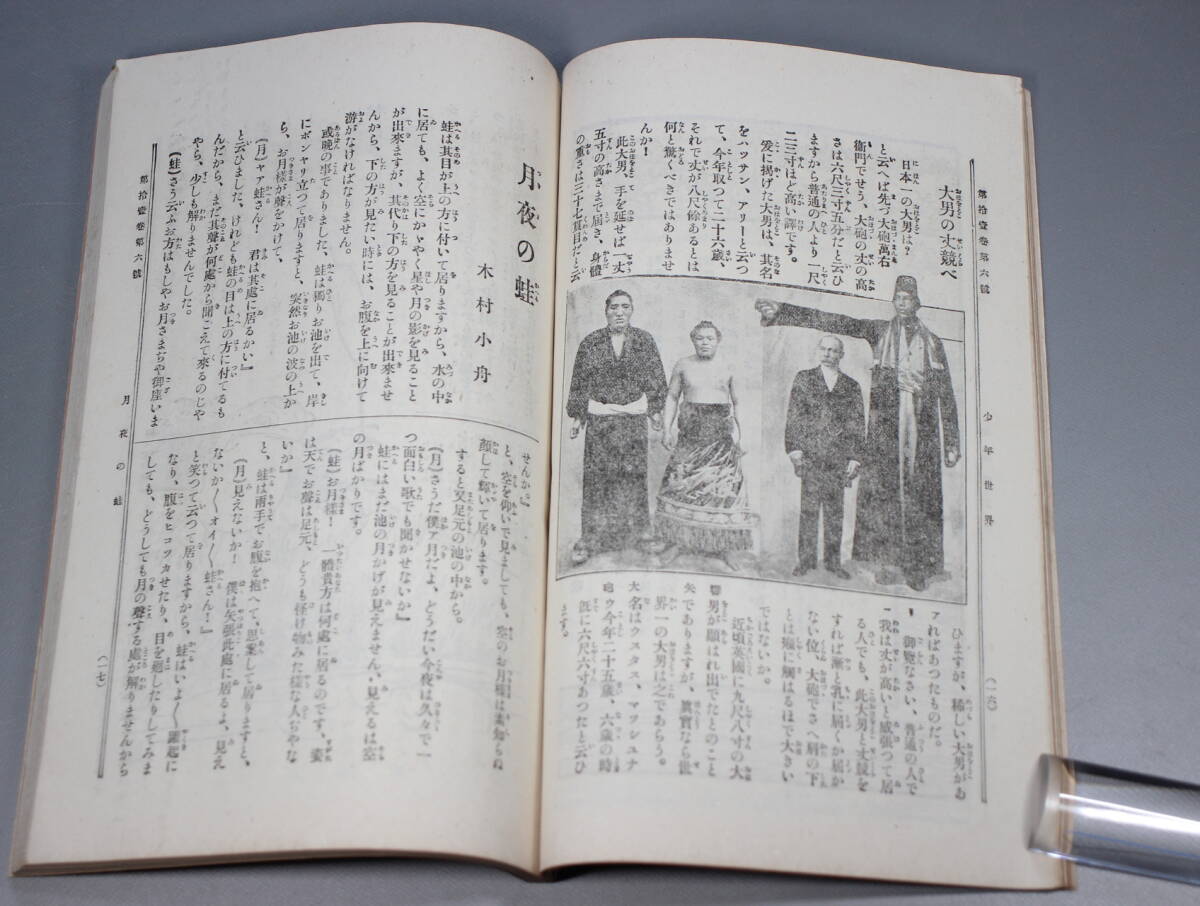 第拾壹卷第六號
少年世界
(一六)
大男の丈競べ
日本一の大男は?
と云へば先づ大砲萬右
衛門でせう、大砲の丈の高
さは六尺三寸五分だと云ひ
ますから普通の人より一尺
二三寸ほど高い譯です。
爰に揭げた大男は、其名
をハッサン、アリーと云つ
て、今年取つて二十六歲、
それで丈が八尺餘あるとは
何と驚くべきではありませ
んか!
此大男、手を延せば一丈
五寸の高さまで届き、身體
の重さは三十七貫目だと云
ひますが、稀しい大男がお
ァればあつたものだ。
御覽なさい、普通の人で
我は丈が高いと威張つて居
る人でも、此大男と丈競を
すれば漸と乳に届くか届か
ない位、大砲でさへ肩の下
とは癪に觸はるほで大きい
ではないか。
近頃英國に九尺八寸の大
男が顯はれ出でたとのこと
でありますが、眞實なら世
界一の大男は之であらう。
大名はウスタス、マツシュナ
砲ウ今年二十五歲、六歲の時
旣に六尺六寸あつたと云ひ
ます。
月夜の蛙
木村小舟
蛙は其目が上の方に付いて居りますから、水の中
に居ても、よく空にかゞやく星や月の影を見ること
が出來ますが、其代り下の方を見ることが出來ませ
んから、下の方が見たい時には、お腹を上に向けて
游がなければなりません。
或晚の事でありました、蛙は獨りお池を出て、岸
にボンヤリ立つて居りますと、突然お池の波の上か
ら、お月樣が聲をかけて、
(月)ヤァ蛙さん! 君は其處に居るかい』
と云ひました、けれども蛙の目は上の方に付てるも
んだから、まだ其聲が何處から聞こえて來るのじや
やら、少しも解りませんでした。
(蛙)さう云ふお方はもしやお月さまぢや御座いま
せんか』
と、空を仰いで見ましても、空のお月樣は素知らぬ
顏して輝いて居ります。
すると又足元の池の中から。
(月)さうだ僕ァ月だよ、どうだい今夜は久々で一
つ面白い歌でも聞かせないか』
蛙にはまだ池の月かげが見えません、見えるは空
の月ばかりです。
(蛙)お月樣! 一體貴方は何處に居るのです、姿
は天でお聲は足元、どうも怪け物みた樣な人ぢやな
いか』
と、蛙は兩手でお腹を抱へて、思案して居りますと、
(月)見えないか! 僕は矢張此處に居るよ、見え
ないか〱オイ〱蛙さん!』
と笑つて云つて居りますから、蛙はいよ〱躍起に
なり、腹をヒコツカせたり、目を廻したりしてみま
しても、どうしても月の聲する處が解りませんから
第拾壹卷第六號
月夜の蛙
(一七)